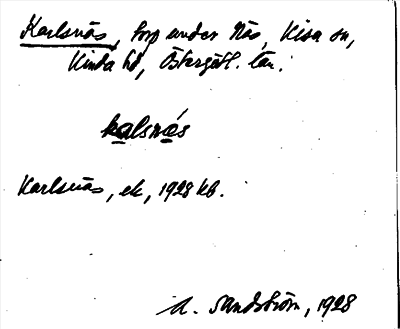 Karlsnäs, torp under Näs, Kisa sn,
Kinda hd, Östergötl. län.
kalsnás
Karlsnäs, ek, 1928 kb.
A. Sandström, 1928